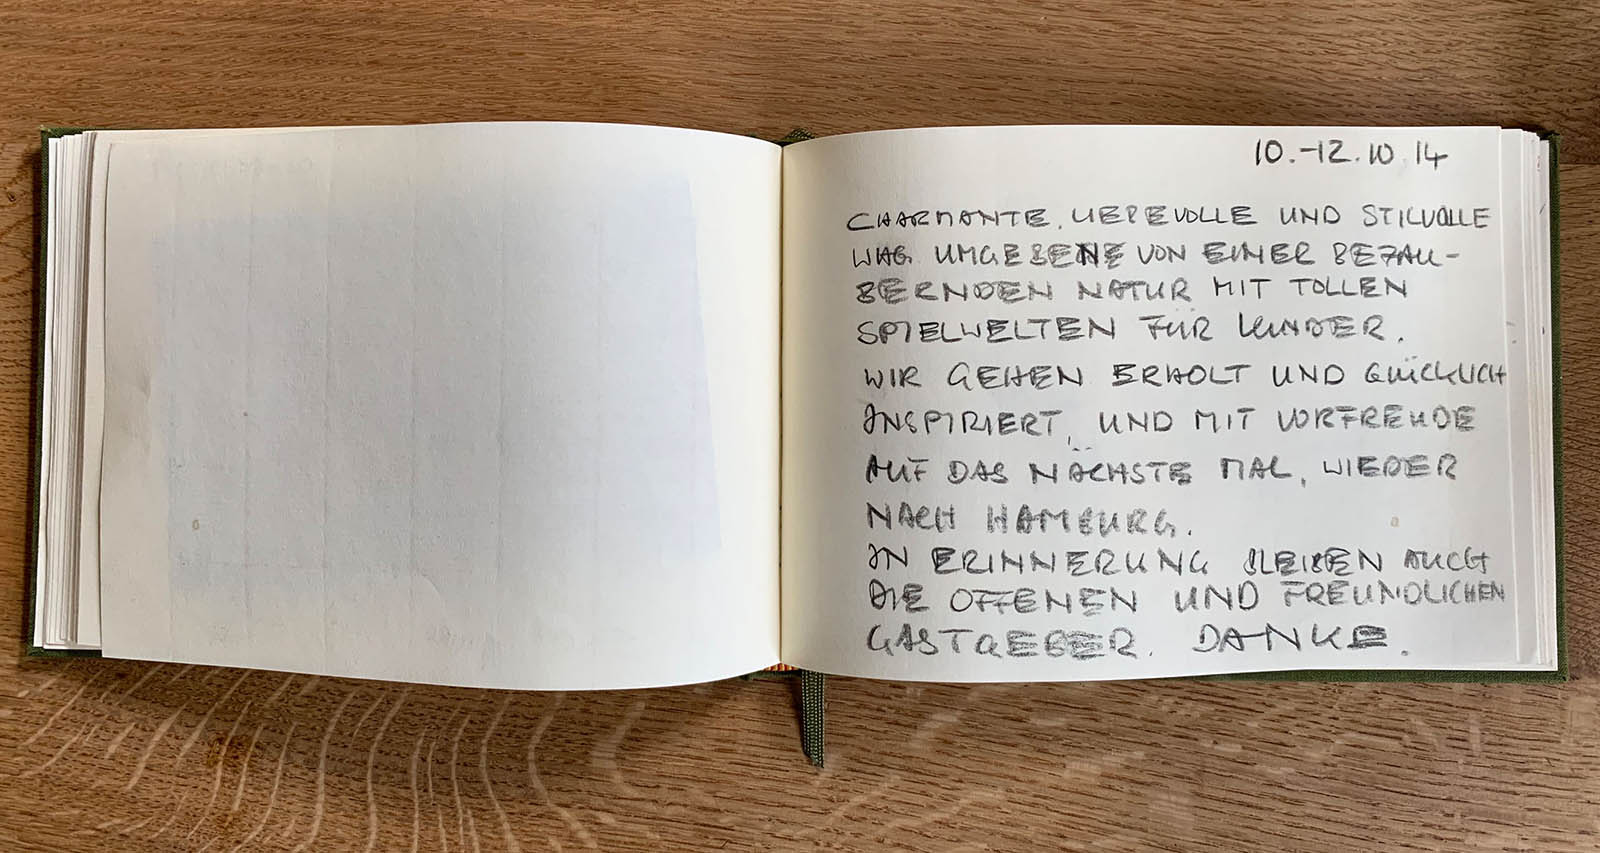 10.-12.10.14
CHARMANTE, LIEBEVOLLE UND STILVOLLE
UMGEBENE VON EINER BEZAU-
BERNDEN NATUR MIT TOLLEN
SPIELWELTEN FÜR KINDER.
WIR GEHEN ERHOLT UND GLÜCKLICH
INSPIRIERT, UND MIT VORFREUDE
AUF DAS NÄCHSTE MAL, WIEDER
NACH HAMBURG.
IN ERINNERUNG BLEIBEN AUCH
DIE OFFENEN UND FREUNDLICHEN
GASTGEBER. DANKE.